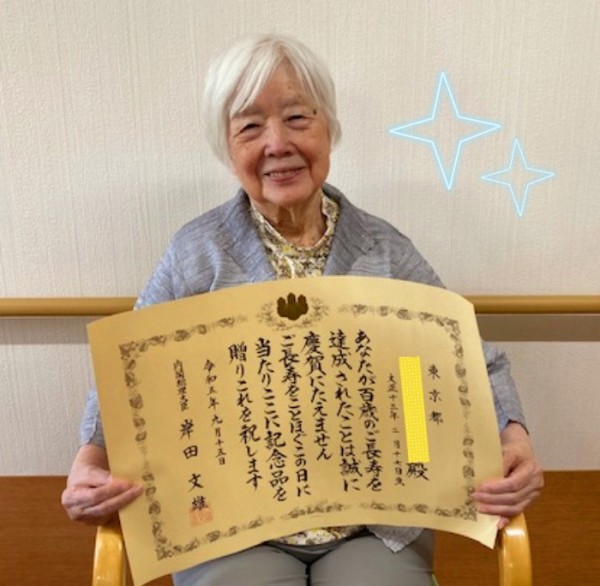 東京都
殿
大正十三年 二月十七日生
あなたが百歳のご長寿を
達成されたことは誠に
慶賀にたえません
ご長寿をことほぐこの日に
当たりここに記念品を
贈りこれを祝します
令和五年九月十五日
内閣総理大臣 岸田文雄